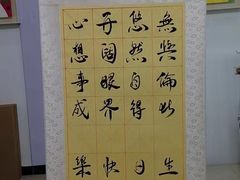 無與倫比
悠然自得
开阔眼界
心想事成
生日快樂